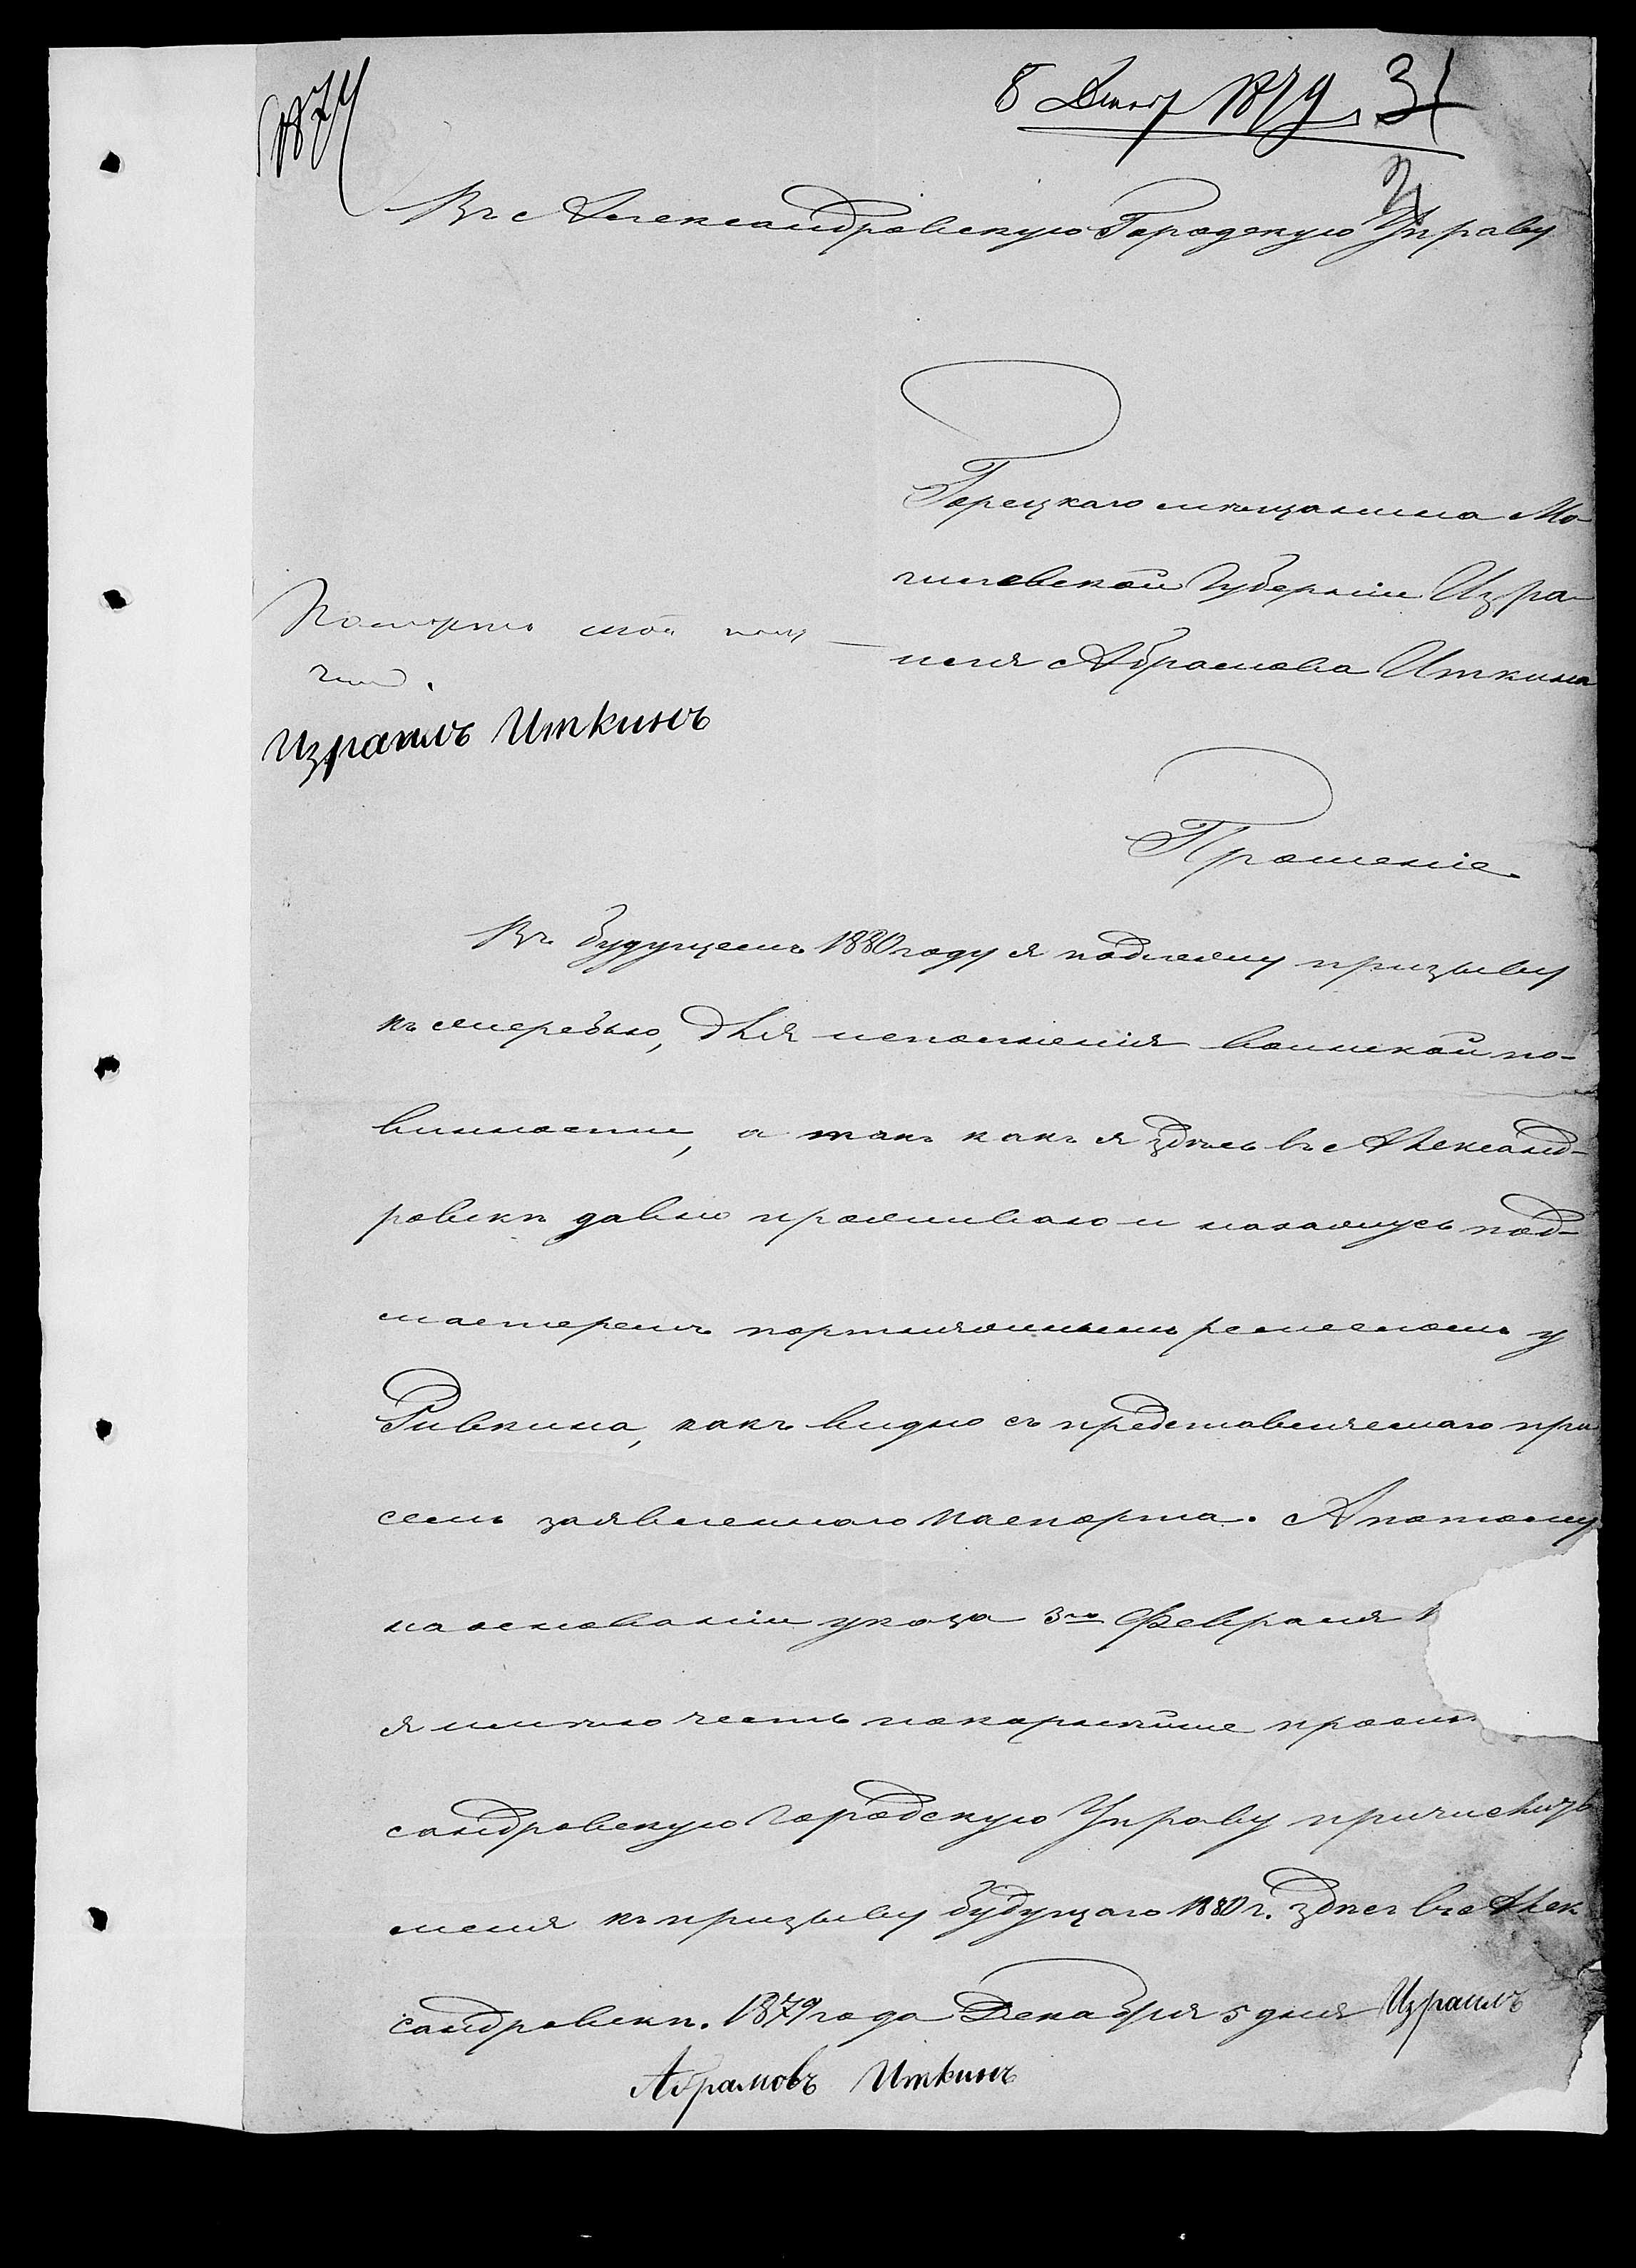 8 Декбр 1879 31
1874
2
Въ Александровскую Городскую Управу
Горецкаго мѣщанина Мо-
гилевской Губерніи Изра-
иля Абрамова Иткина
Паспортъ мой полу-
чилъ.
Израиль Иткинъ
Прошеніе.
Въ будущемъ 1880 году я подлежу призыву
къ жеребью, для исполненія воинской по-
винности, а такъ какъ я здѣсь въ Александ-
ровскѣ давно проживаю и нахожусь под-
мастеремъ портняжнымъ ремесломъ у
Ривкина, какъ видно съ представляемаго при
семъ заявленнаго паспорта. А потому
на основаніи указа 3го Февраля
я имѣю честь покорнѣйше просить
сандровскую Городскую Управу причислить
меня къ призыву будущаго 1880 г. здѣсь въ Алек
сандровскѣ. 1879 года Декабря 5 дня Израиль
Абрамовъ Иткинъ